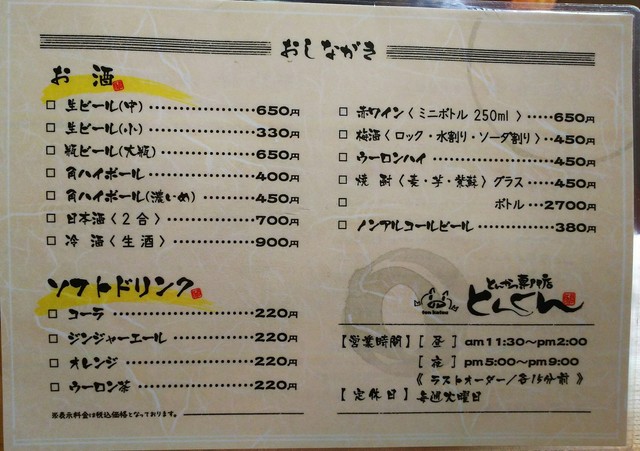 おしながき
お酒
□ 生ビール(中) 650円
□ 生ビール(小) 330円
□ 瓶ビール(大瓶) 650円
□ 角ハイボール 400円
□ 角ハイボール(濃いめ) 450円
□ 日本酒〈2合〉 700円
□ 冷酒〈生酒〉 900円
ソフトドリンク
□ コーラ 220円
□ ジンジャーエール 220円
□ オレンジ 220円
□ ウーロン茶 220円
※表示料金は税込価格となっております。
□ 赤ワイン〈ミニボトル 250ml〉 650円
□ 梅酒〈ロック・水割り・ソーダ割り〉 450円
□ ウーロンハイ 450円
□ 焼酎〈麦・芋・紫蘇〉グラス 450円
□ ボトル 2700円
□ ノンアルコールビール 380円
とんかつ専門店
とんくん
【営業時間】[昼] am11:30〜pm2:00
[夜] pm5:00〜pm9:00
《ラストオーダー/各15分前》
【定休日】毎週火曜日